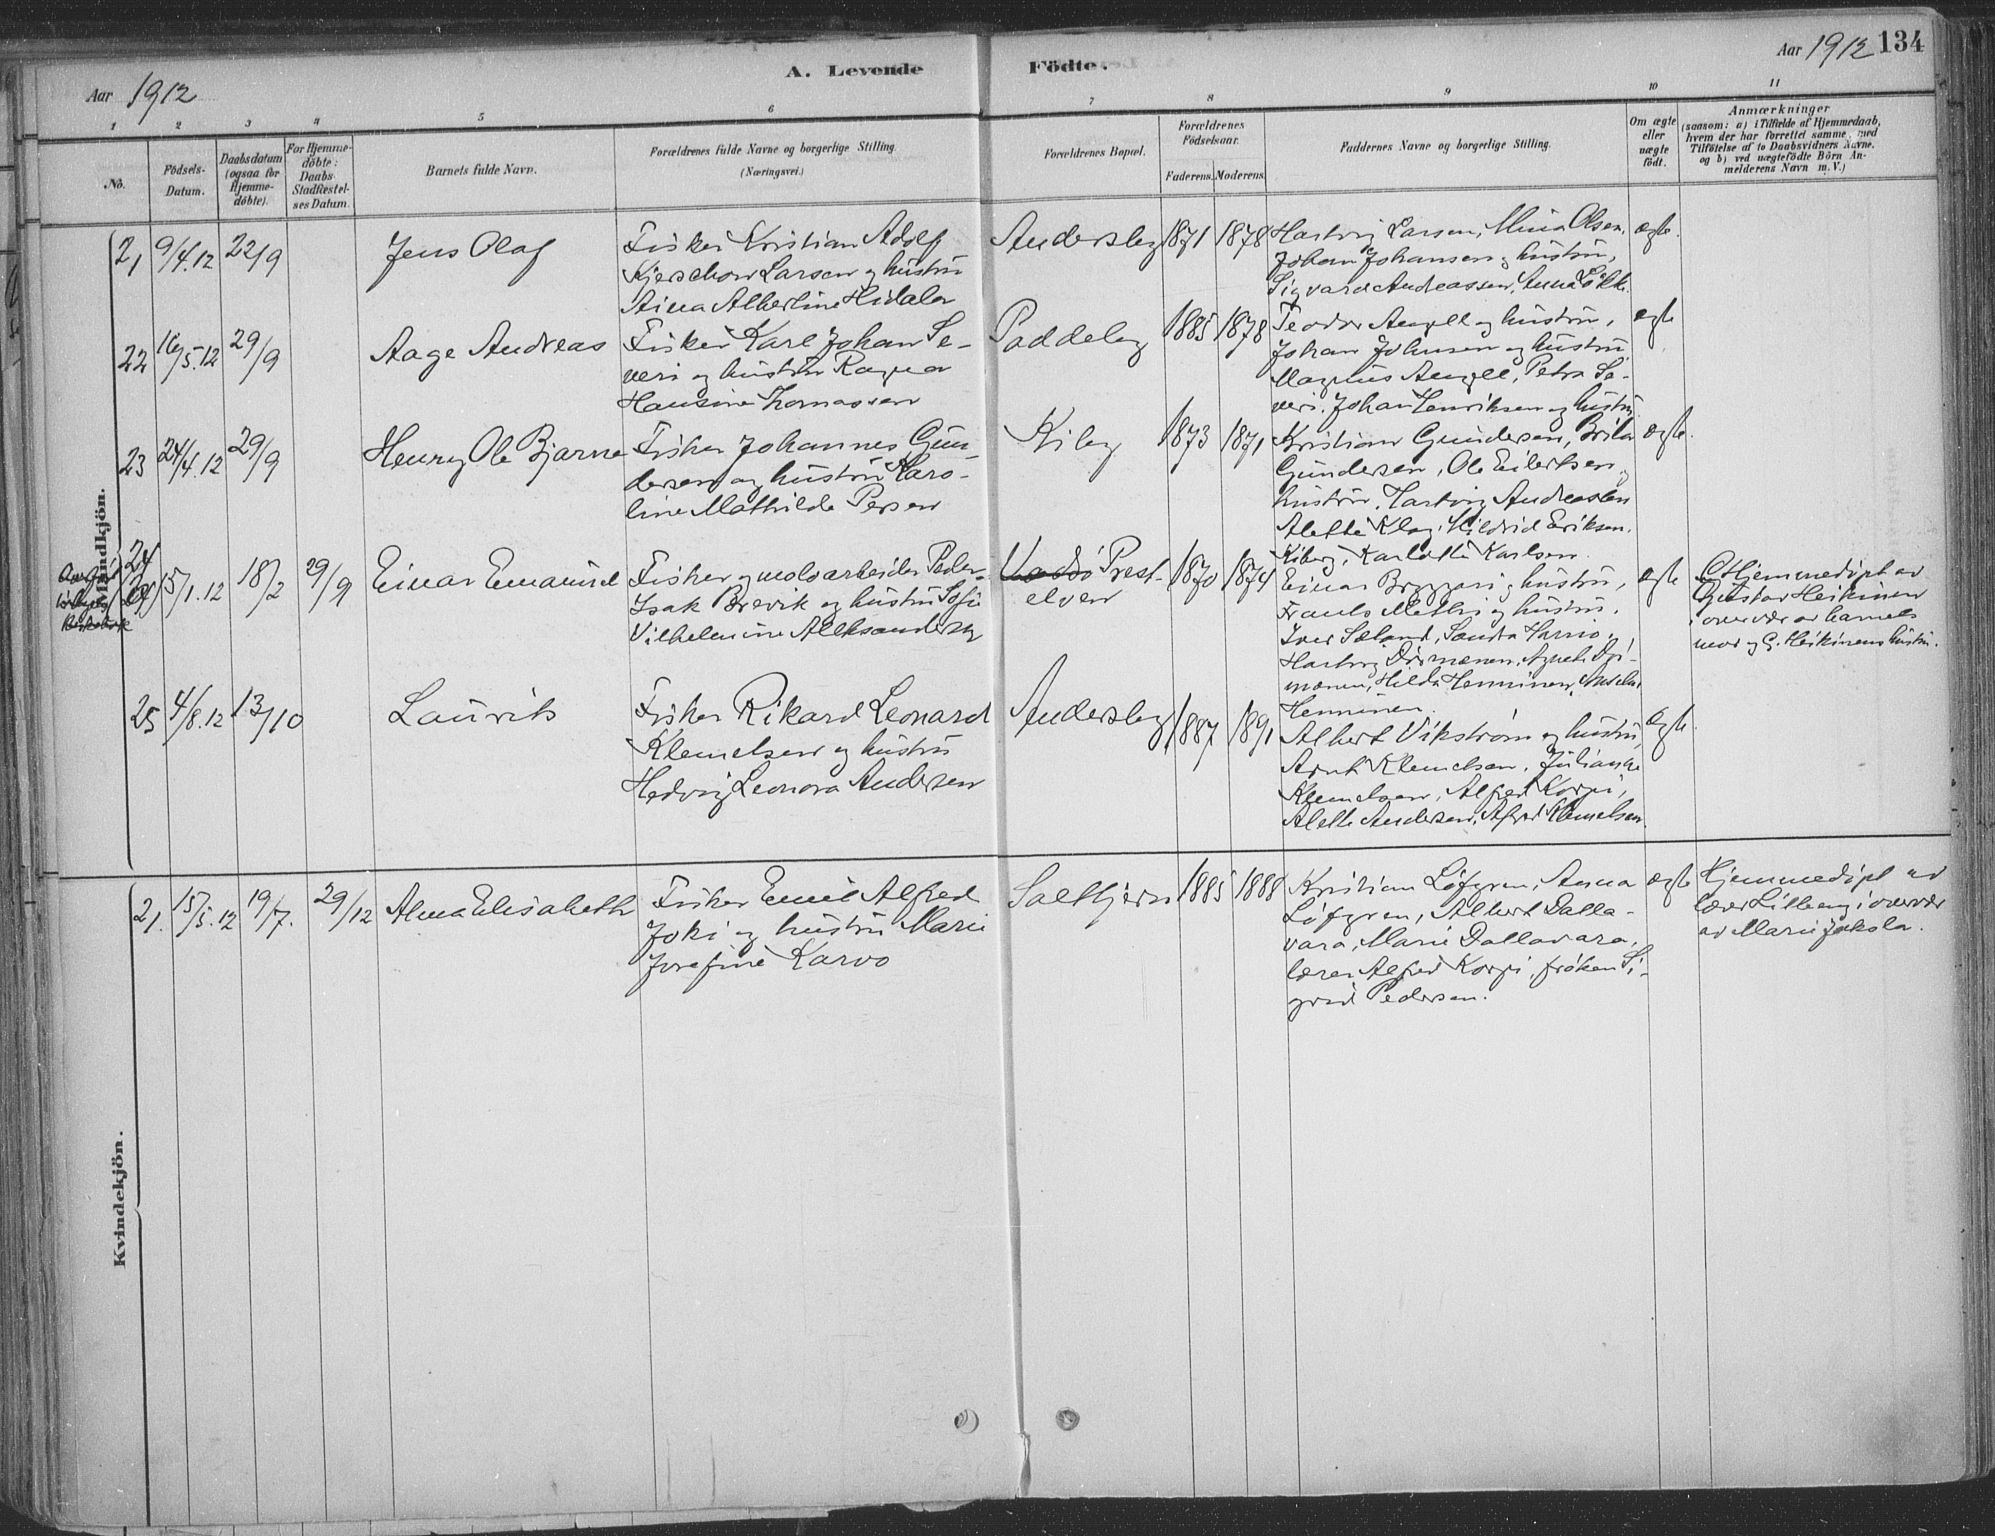 Aar 1912
A. Levende Födte.
Aar 1912 134
1 2 3 4 5 6 7 8 9 10 11
No.
Födsels-
Datum.
Daabsdatum
(ogsaa for
Hjemme-
döbte).
For Hjemme-
döbte:
Daabs-
Stadfæstel-
ses Datum.
Barnets fulde Navn.
Forældrenes fulde Navne og borgerlige Stilling.
(Næringsvei.)
Forældrenes Bopæl.
Forældrenes
Födselsaar.
Faderens. Moderens.
Faddernes Navne og borgerlige Stilling.
Om ægte
eller
uægte
födt.
Anmærkninger
(saasom: a) i Tilfælde af Hjemmedaab,
hvem der har forrettet samme, med
Tilföielse af to Daabsvidners Navne,
og b) ved uægtefödte Börn An-
melderens Navn m. V.)
Mandkjön.
21 9/4.12 22/9
Jens Olaf
Fisker Kristian Adolf
Kjerschow Larsen og hustru
Aina Albertine Hidalen
Andersby 1871 1878
Hartvig Larsen, Mina Olsen,
Johan Johansen og hustru,
Sigvard Andreassen, Anna
ægte.
22 16/5.12 29/9
Aage Andreas
Fisker Karl Johan Se-
veri og hustru Ragna
Hansine Thomassen
Paddeby 1885 1878
Teodor Angell og hustru,
Johan Johnsen og hustru
Magnus Angell, Petra Se-
veri. Johan Henriksen og hustru
ægte
23 24/4.12 29/9
Henry Ole Bjarne
Fisker Johannes Gun-
dersen og hustru Karo-
line Mathilde Persen
Kiby 1873 1871
Kristian Gundersen, Brita
Gundersen, Ole Eilertsen og
hustru, Hartvig Andreassen
Alette Klog, Hildrid Eriksen.
Kiberg, Karlotte Karlsen.
ægte.
24 15/1.12 18/2 29/9
Einar Emanuel
Fisker og molo arbeider Peder
Isak Brevik og hustru Sofie
Vilhelmine Aleksandersen
Vadsö Prest-
elven 1870 1874
Einar Bryggari og hustru,
Frants Methi og hustru,
Iver Sæland, Sandra Harrio,
Hartvig
Hilda Henninen,
Henninen.
ægte
Hjemmedöpt av
Gustav Heikinen
i overvær av barnets
mor og G. Heikinens hustru.
25 4/8.12 13/10
Laurits
Fisker Rikard Leonard
Klemetsen og hustru
Hedvig Leonora Andersen
Andersby 1887 1891
Albert Vikström og hustru,
Arnt Klemetsen, Juliane
Klemetsen, Alfred Korpi,
Alette Andersen, Alfred Klemetsen.
ægte.
Kvindekjön.
21. 15/5.12 19/7. 29/12
Alma Elisabeth
Fisker Emil Alfred
Joki og hustru Marie
Josefine Karvo
Saltjern 1885 1888
Kristian Löfgren, Anna
Löfgren, Albert Dalla-
vara, Marie Dallavara,
lærer Alfred Korpi, fröken Si-
grid Pedersen.
ægte
Hjemmedöpt av
lærer Lilleeng i overvær
av Marie Jokola.